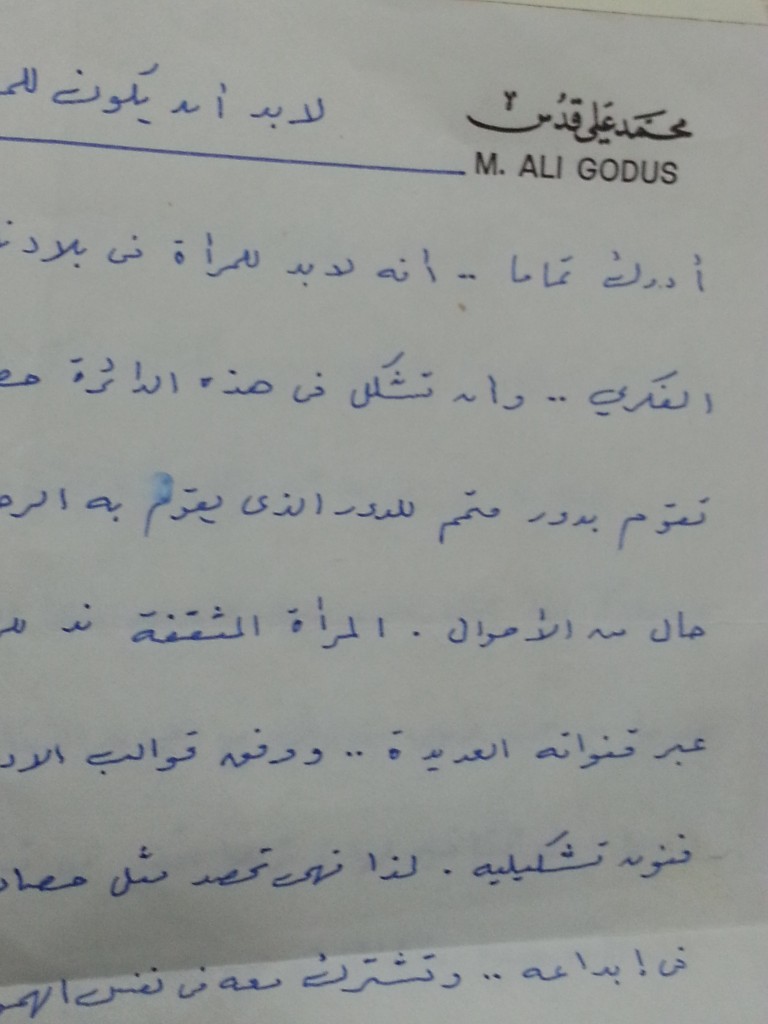 محمد علي قدس
M. ALI GODUS
لابد أن يكون
أدرك تماما .. أنه لابد للمرأة فى
الفكري .. وان تشكل فى هذه الدائرة
تقوم بدور متمم للدور الذى يقوم به
حال من الأحوال . المرأة المثقفة ند
عبر قنواته العديدة .. ووفق قوالب
فنون تشكيليه . لذا فهى تحصد مثل
فى إبداعه .. وتشترك معه فى نفس